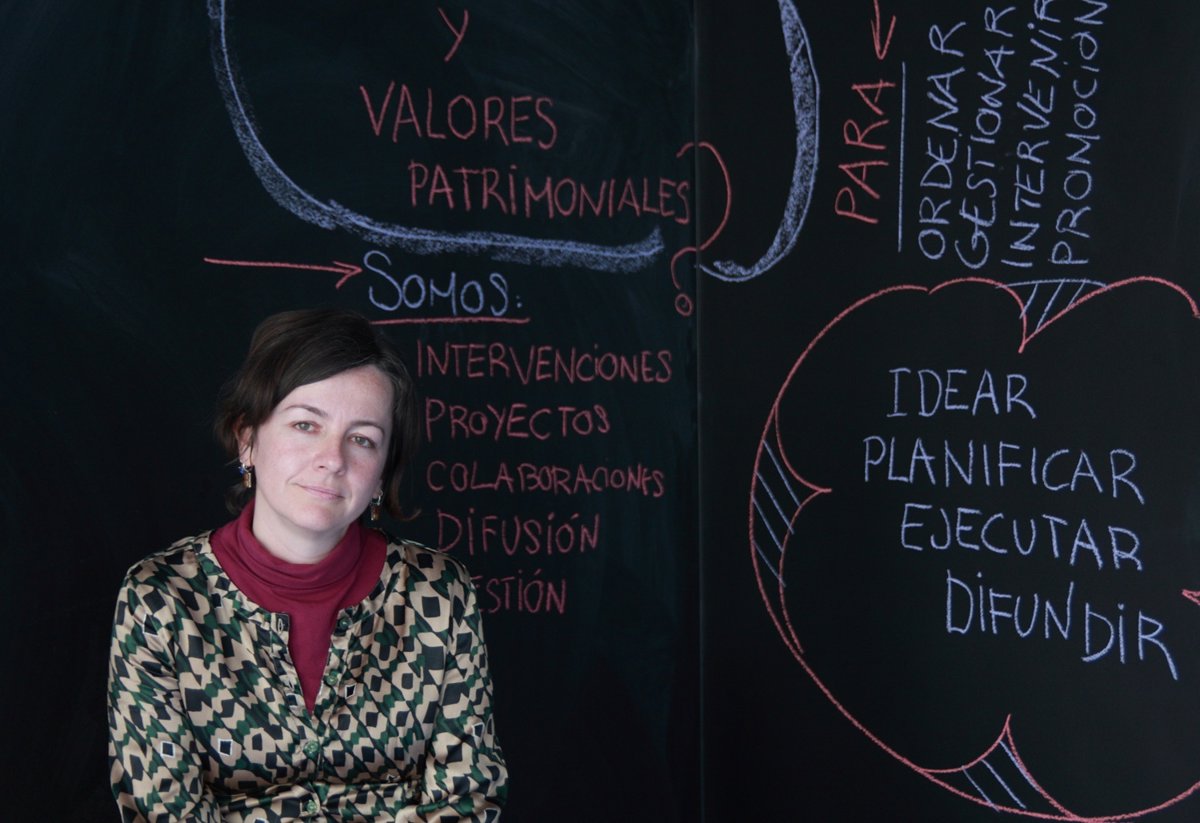 Y
VALORES
PATRIMONIALES
?
SOMOS:
INTERVENCIONES
PROYECTOS
COLABORACIONES
DIFUSIÓN
ESTIÓN
PARA
ORDENAR
GESTIONAR
INTERVENIR
PROMOCIÓN
IDEAR
PLANIFICAR
EJECUTAR
DIFUNDIR